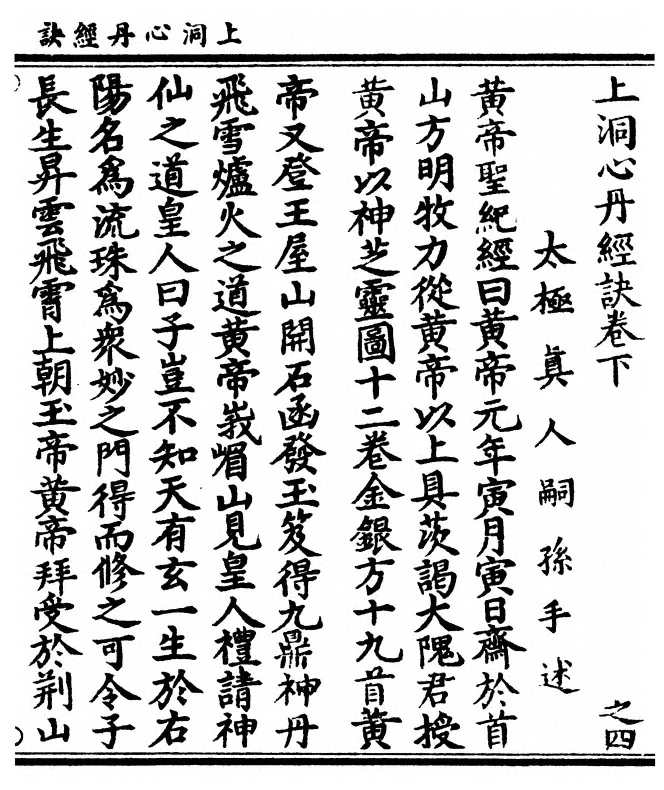 上洞心丹經訣
上洞心丹經訣卷下
之四
太極眞人嗣孫手述
黃帝聖紀經曰黃帝元年寅月寅日齋於首
山方明牧力從黃帝以上具茨謁大隗君授
黃帝以神芝靈圖十二卷金銀方十九首黃
帝又登王屋山開石函發玉笈得九鼎神丹
飛雪爐火之道黃帝峩嵋山見皇人禮請神
仙之道皇人曰子豈不知天有玄一生於右
陽名爲流珠爲衆妙之門得而修之可令子
長生昇雲飛霄上朝玉帝黃帝拜受於荆山